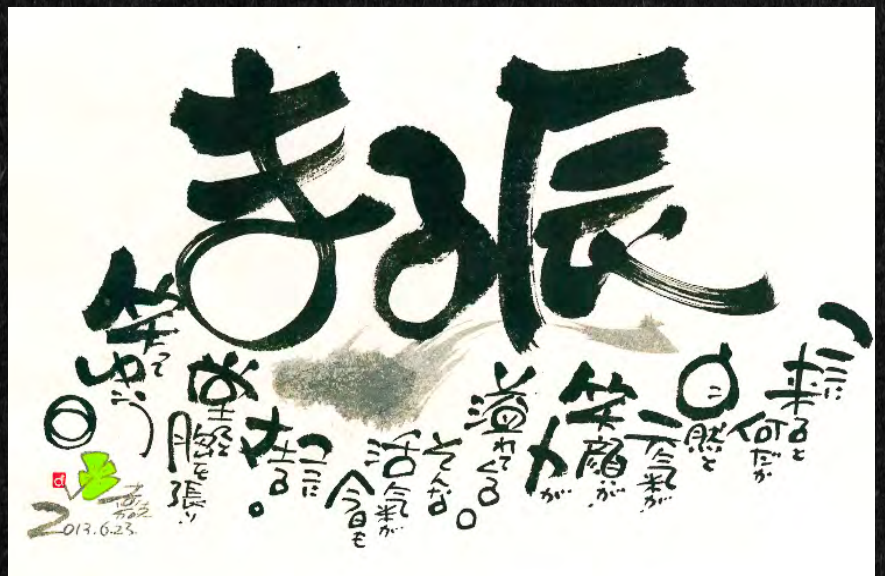 まる辰
ここに
来ると
何だか
自然と
元気が
笑顔が
力が
溢れてくる。
そんな
活気が
今日も
ここに
在る。
堂々と
胸を張り
笑って
ゆこう
◎
2013.6.23